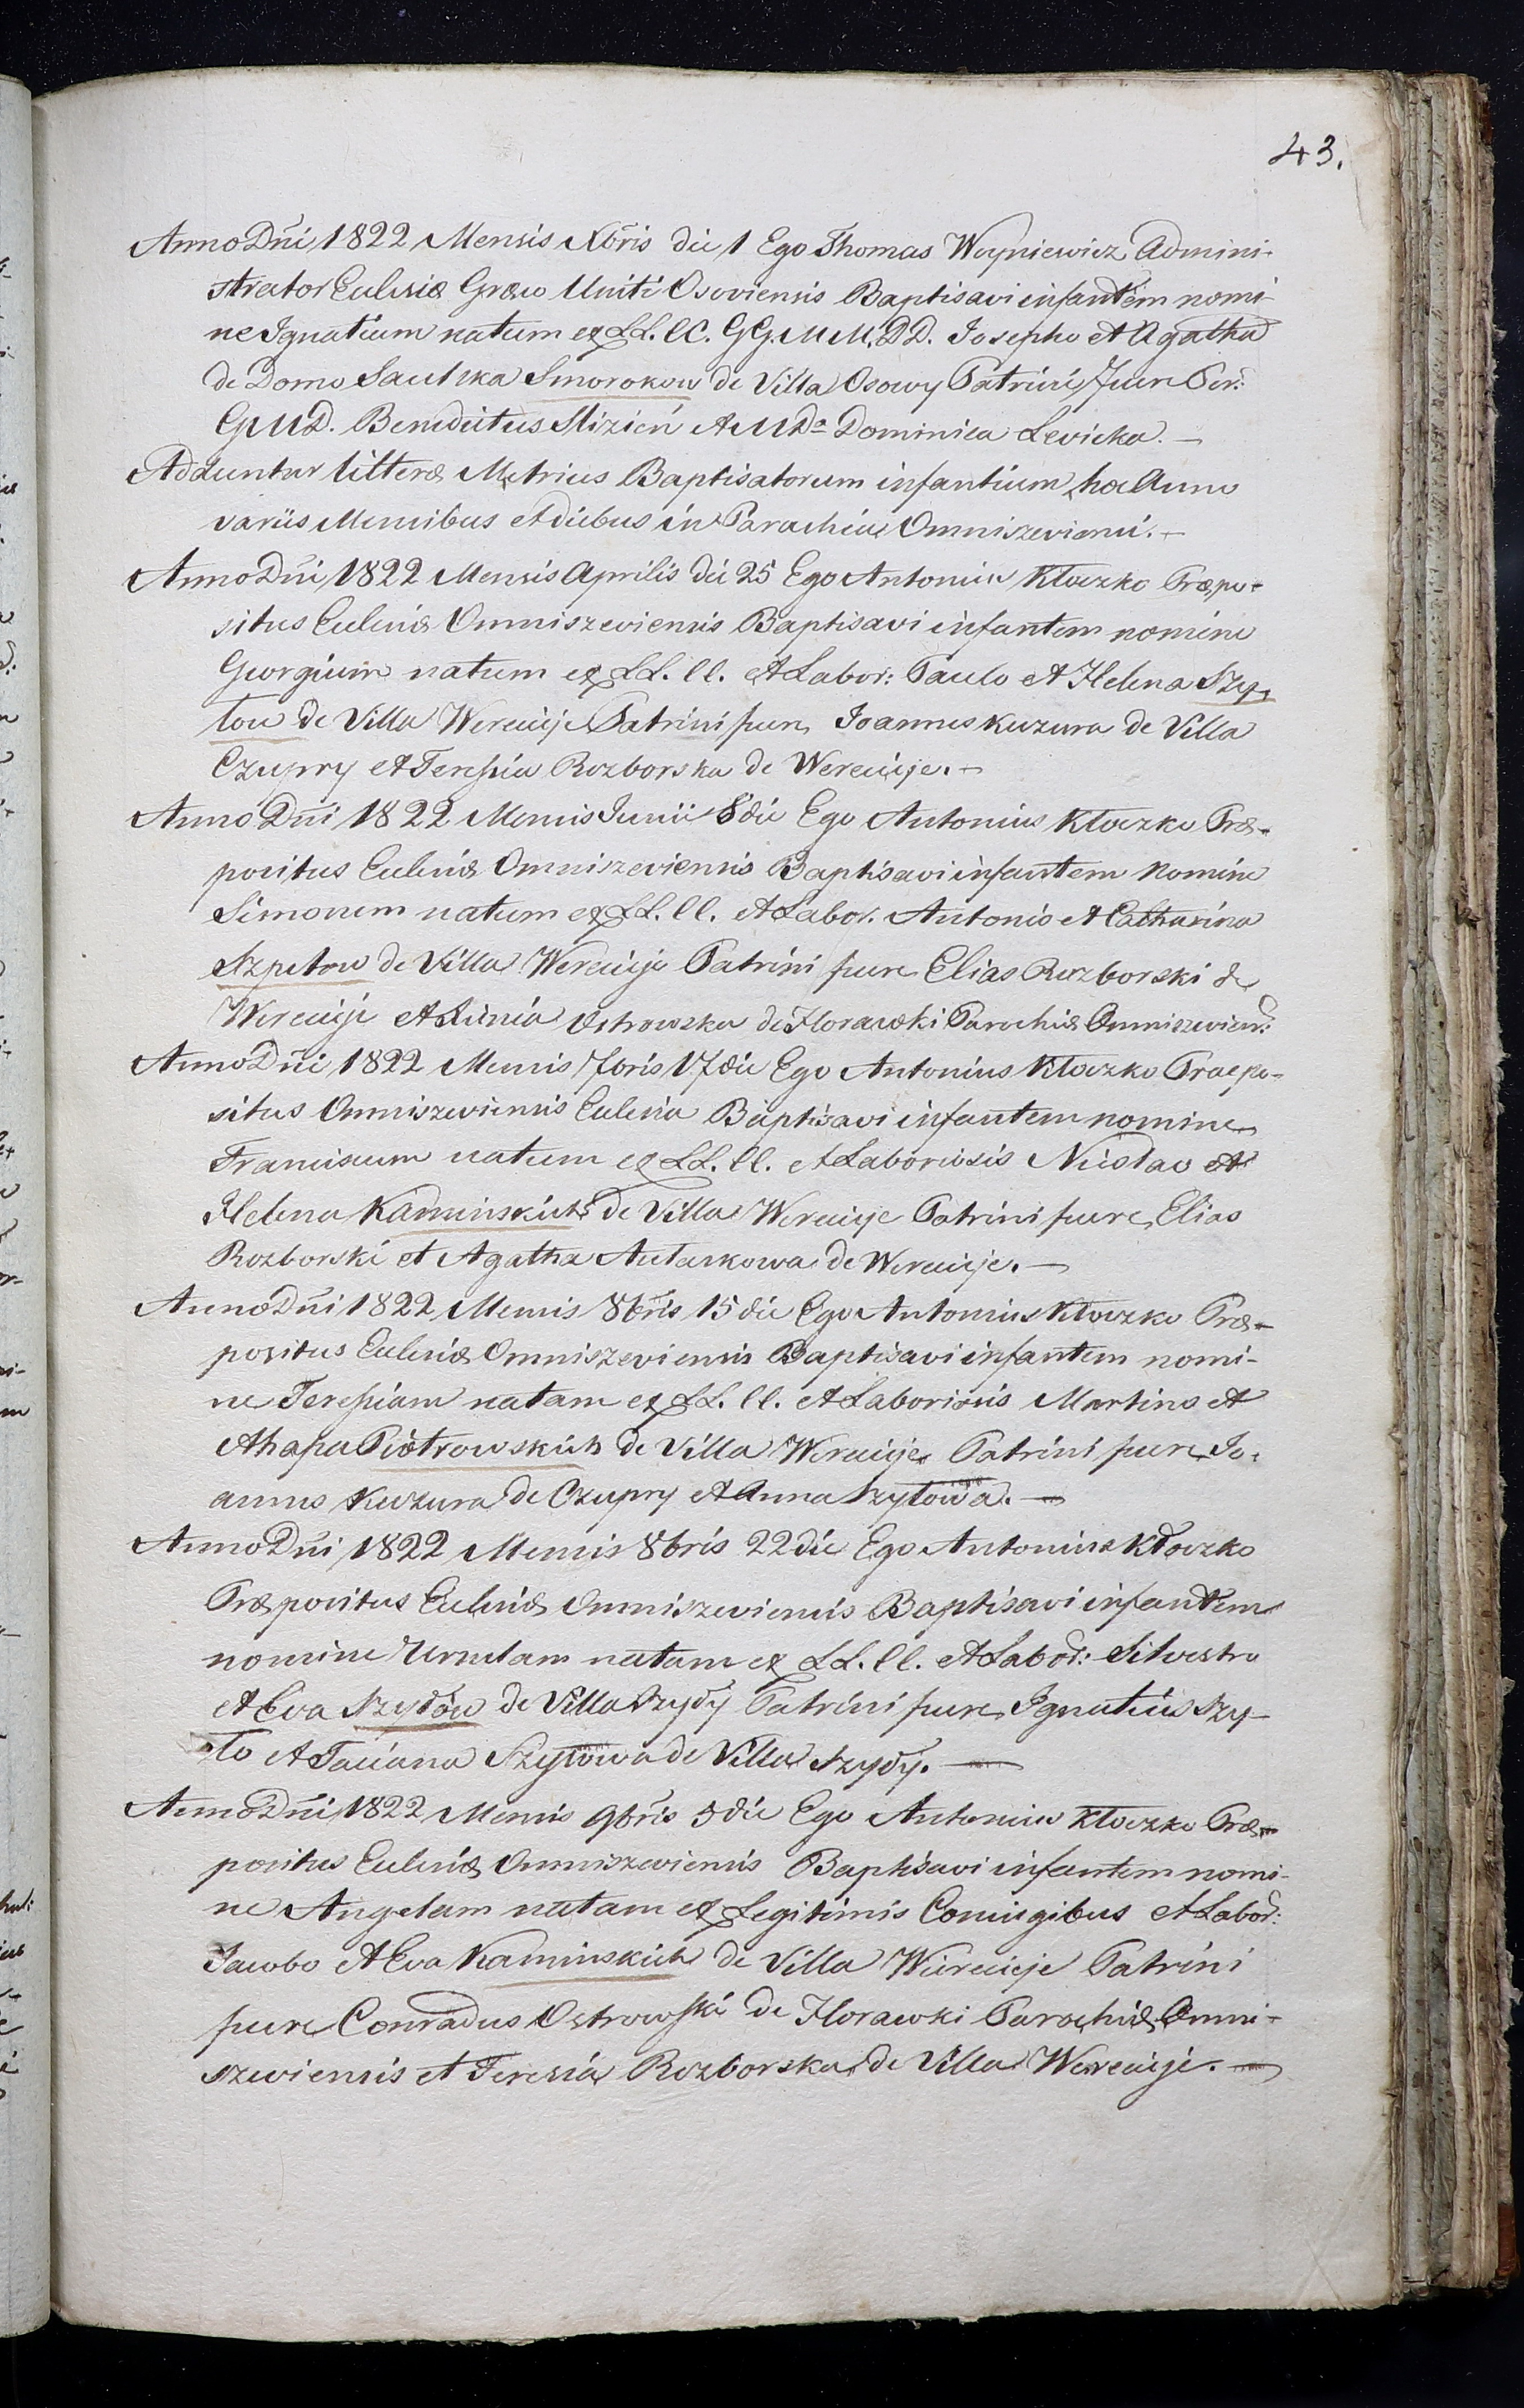 43.
Anno Dńi 1822 Mensis Xbris die 1 Ego Thomas Woyniewicz Admini-
strator Eclesiæ Græco Uniti Osoviensis Baptisavi infantem nomi-
ne Ignatium natum ex LL. CC. GG. MM. DD. Josepho et Agatha
de Domo Smorokow de Villa Osowy Patrini fuere Per:
GMD. Benedictus Mizień et MDa Dominica Levicka. —
Adduntur litteræ Metrices Baptisatorum infantium hoc Anno
variis Mensibus et diebus in Parachia Omniszeviensi. —
Anno Dńi 1822 Mensis Aprilis die 25 Ego Antonius Kłoczko Præpo-
situs Eclesiæ Omniszeviensis Baptisavi infantem nomine
Georgium natum ex LL. CC. et Labor: Paulo et Helena Szy-
tow de Villa Wereicije Patrini fuere Joannes Kuzura de Villa
Czupry et Teressia Rozborska de Wereicije. —
Anno Dńi 1822 Mensis Junii 8 die Ego Antonius Kłoczko Præ-
positus Eclesiæ Omniszeviensis Baptisavi infantem nomine
Simonem natum ex LL. CC. et Labor. Antonio et Catharina
Szpetow de Villa Wereicije Patrini fuere Elias Rozborski de
Wereicije et Ostrowska de Horawki Parochiæ Omniszevien:
Anno Dńi 1822 Mensis 7bris 17 die Ego Antonius Kłoczko Praepo-
situs Omniszeviensis Eclesia Baptisavi infantem nomine
Franciscum natum ex LL. CC. et Laboriosis et
Helena Kaminskich de Villa Wereicije Patrini fuere Elias
Rozborski et Agatha Autaskowa de Wereicije. —
Anno Dńi 1822 Mensis 8bris 15 die Ego Antonius Kłoczko Præ-
positus Eclesiæ Omniszeviensis Baptisavi infantem nomi-
ne Teressiam natam ex LL. CC. et Laboriosis Martino et
Ahapa Piotrowskich de Villa Wereicije Patrini fuere Jo-
annes Kuzura de Czupry et Anna Szytowa. —
Anno Dńi 1822 Mensis 8bris 22 die Ego Antonius Kłoczko
Præpositus Eclesiæ Omniszeviensis Baptisavi infantem
nomine Ursulam natam ex LL. CC. et Labor: Silvestro
et Eva Szytow de Villa Szydy Patrini fuere Ignatius Szy-
to et Taciana Szytowa de Villa Szydy. —
Anno Dńi 1822 Mensis 9bris 5 die Ego Antonius Kłoczko Præ-
positus Eclesiæ Omniszeviensis Baptisavi infantem nomi-
ne Angelam natam ex Legitimis Coniugibus et Labor:
Jacobo et Eva Kaminskich de Villa Wiereicije Patrini
fuere Conradus Ostrowski de Horawki Parochiæ Omni-
szeviensis et Teresia Rozborska de Villa Wereicije. —